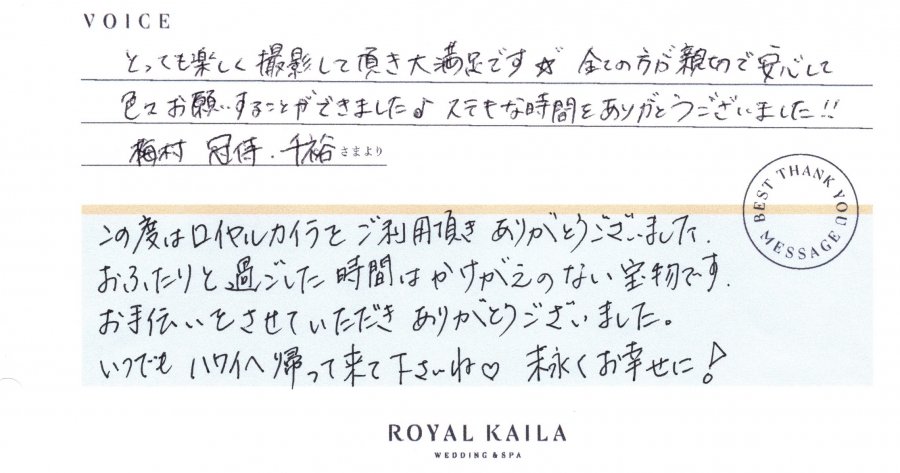 VOICE
とっても楽しく撮影して頂き大満足です☆ 全ての方が親切で安心して
色々お願いすることができました♪ ステキな時間をありがとうございました!!
梅村 冠侍・千裕さまより
BEST THANK YOU MESSAGE
この度はロイヤルカイラをご利用頂きありがとうございました.
おふたりと過ごした時間はかけがえのない宝物です.
お手伝いをさせていただきありがとうございました。
いつでもハワイへ帰って来て下さいね♡ 末永くお幸せに!
ROYAL KAILA
WEDDING & SPA